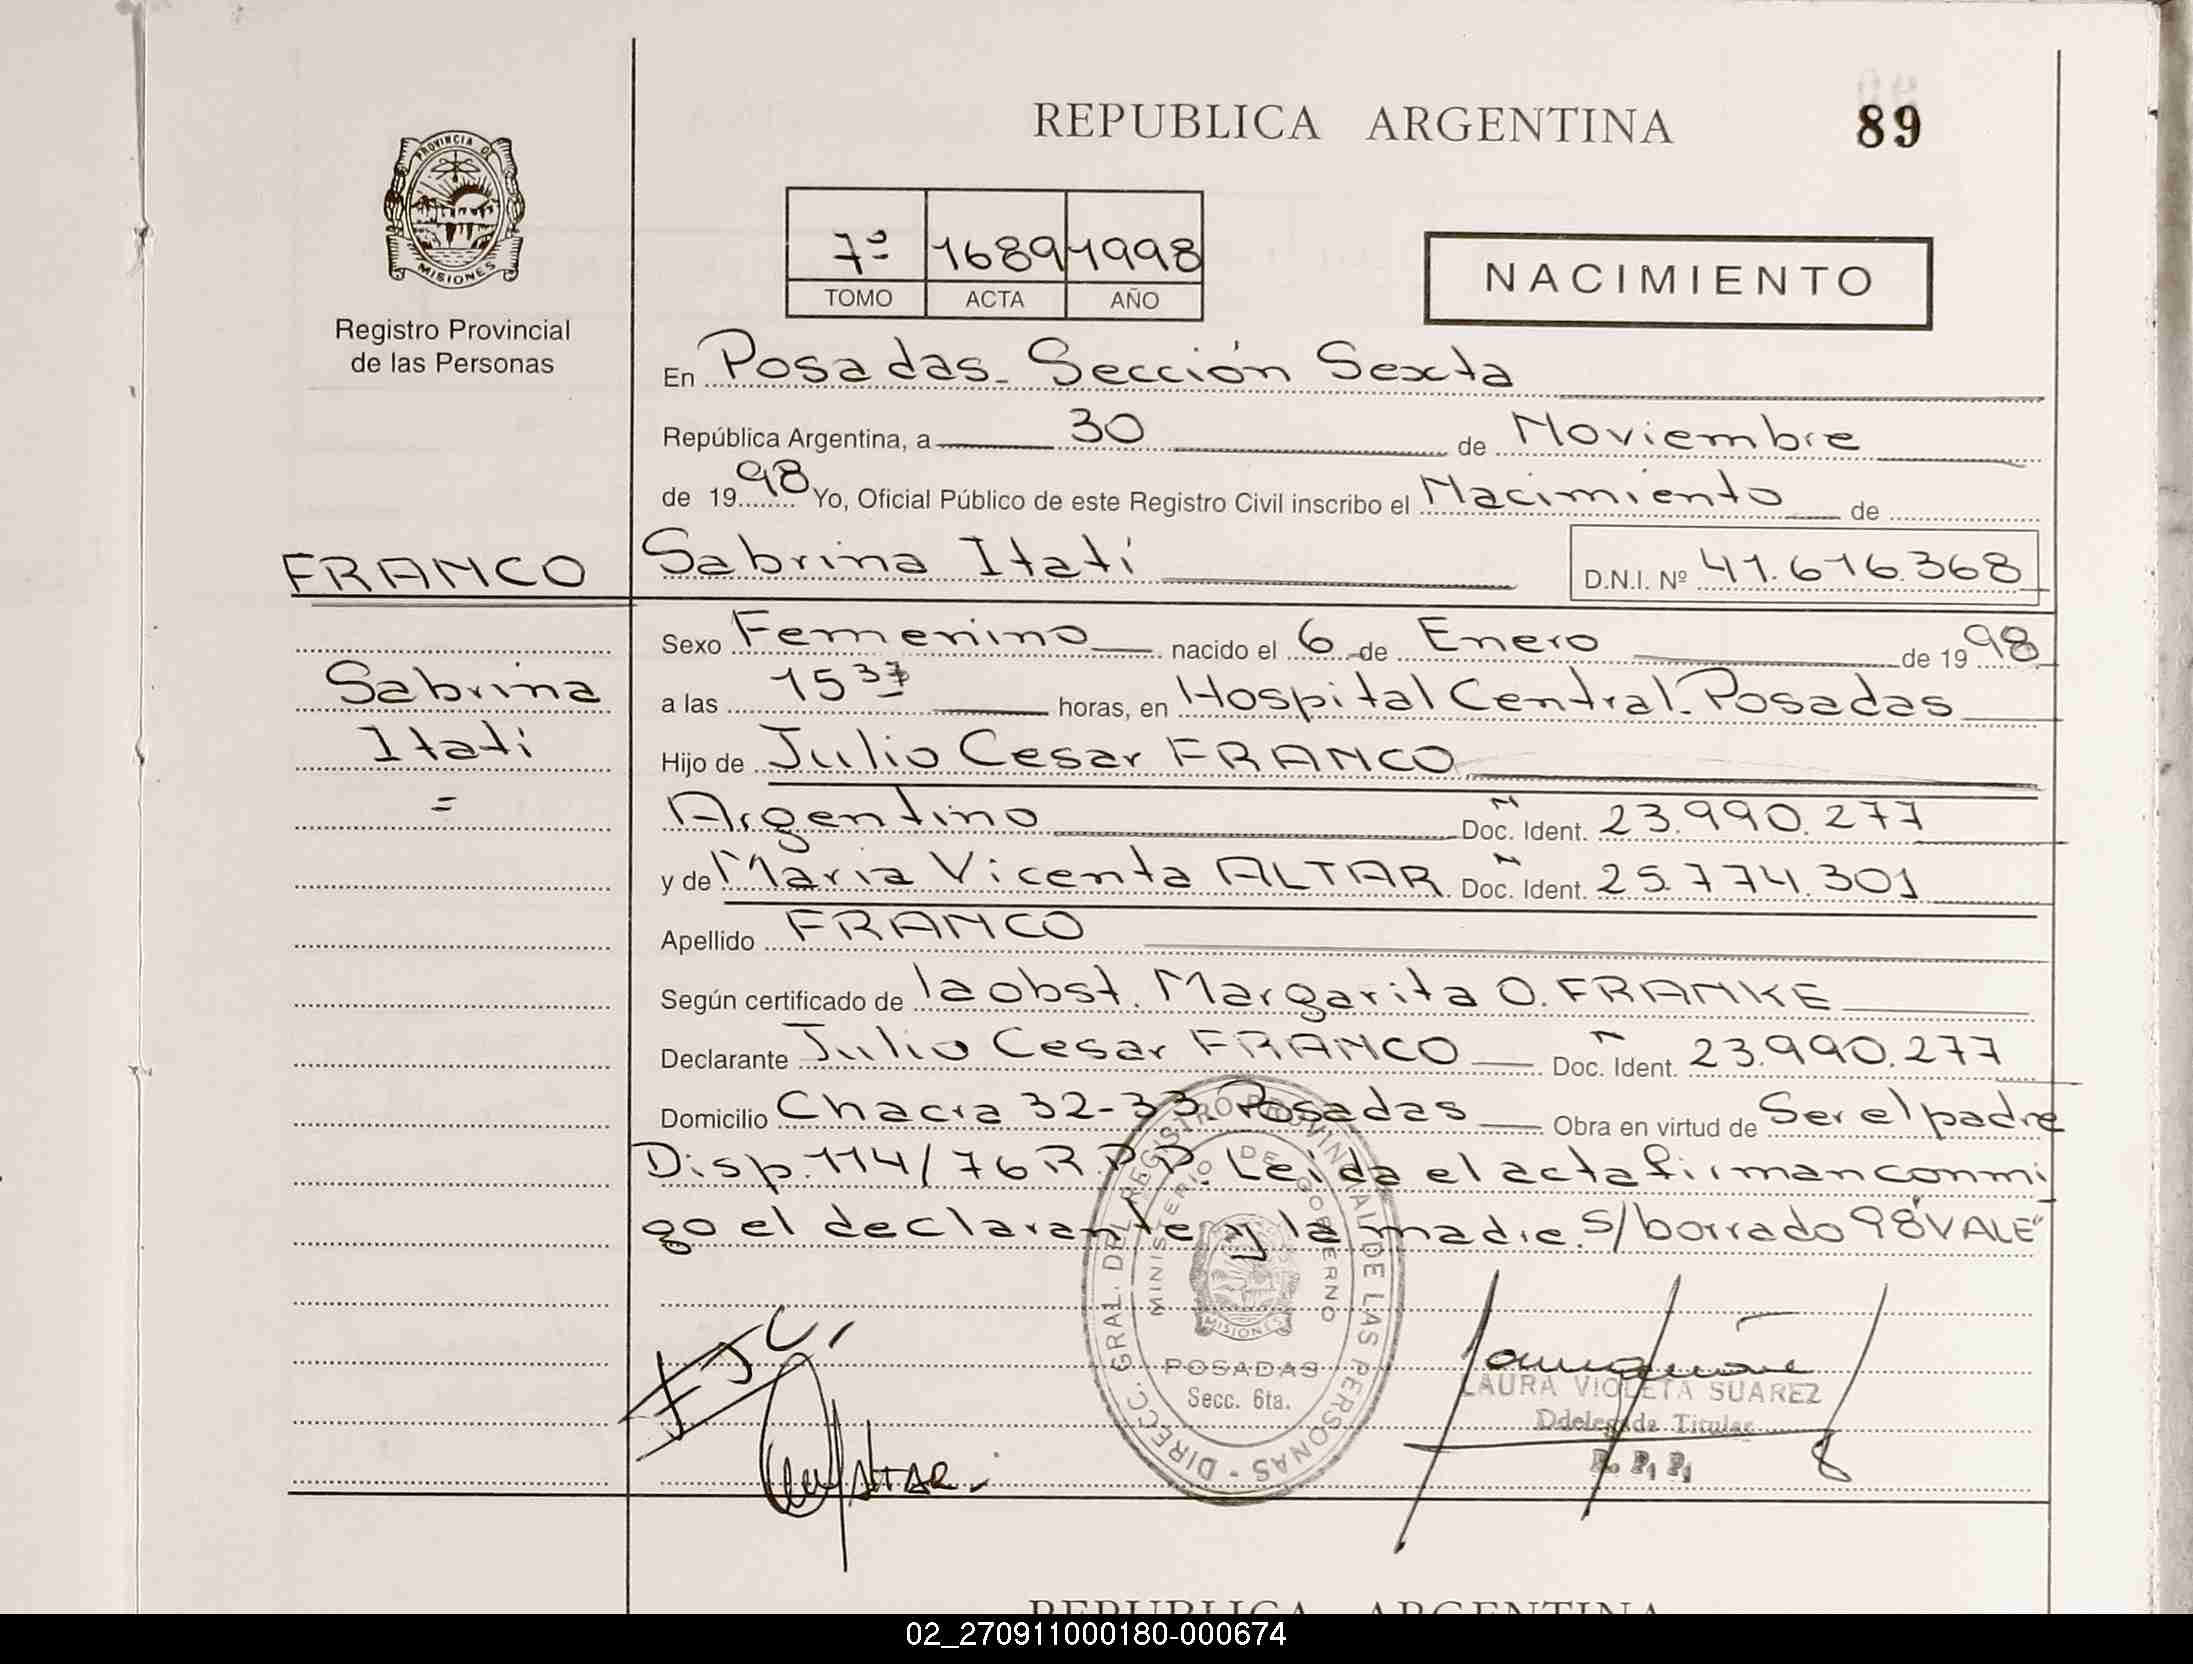 REPUBLICA ARGENTINA
89
PROVINCIA DE
MISIONES
Registro Provincial
de las Personas
7º 1689 1998
TOMO ACTA AÑO
NACIMIENTO
En Posadas-Sección Sexta
República Argentina, a 30 de Noviembre
de 1998 Yo, Oficial Público de este Registro Civil inscribo el Nacimiento de
FRANCO Sabrina Itatí D.N.I. Nº 41.616.368
Sexo Femenino nacido el 6 de Enero de 1998
Sabrina a las 15 37 horas, en Hospital Central-Posadas
Itatí Hijo de Julio Cesar FRANCO
= Argentino N Doc. Ident. 23.990.277
y de Maria Vicenta ALTAR N Doc. Ident. 25.774.301
Apellido FRANCO
Según certificado de la obst. Margarita O. FRANKE
Declarante Julio Cesar FRANCO N Doc. Ident. 23.990.277
Domicilio Chacra 32-33 Posadas Obra en virtud de Ser el padre
Disp. 114/76 R.P.P. Leida el acta firman conmi
go el declarante y la madre. S/borrado 98"VALE"
DIRECC. GRAL. DEL REGISTRO PROVINCIAL DE LAS PERSONAS -
MINISTERIO DE GOBIERNO
MISIONES
POSADAS
Secc. 6ta.
FJC.
ALTAR.
LAURA VIOLETA SUAREZ
Ddelegada Titular
R. P. P.
REPUBLICA ARGENTINA
02_270911000180-000674